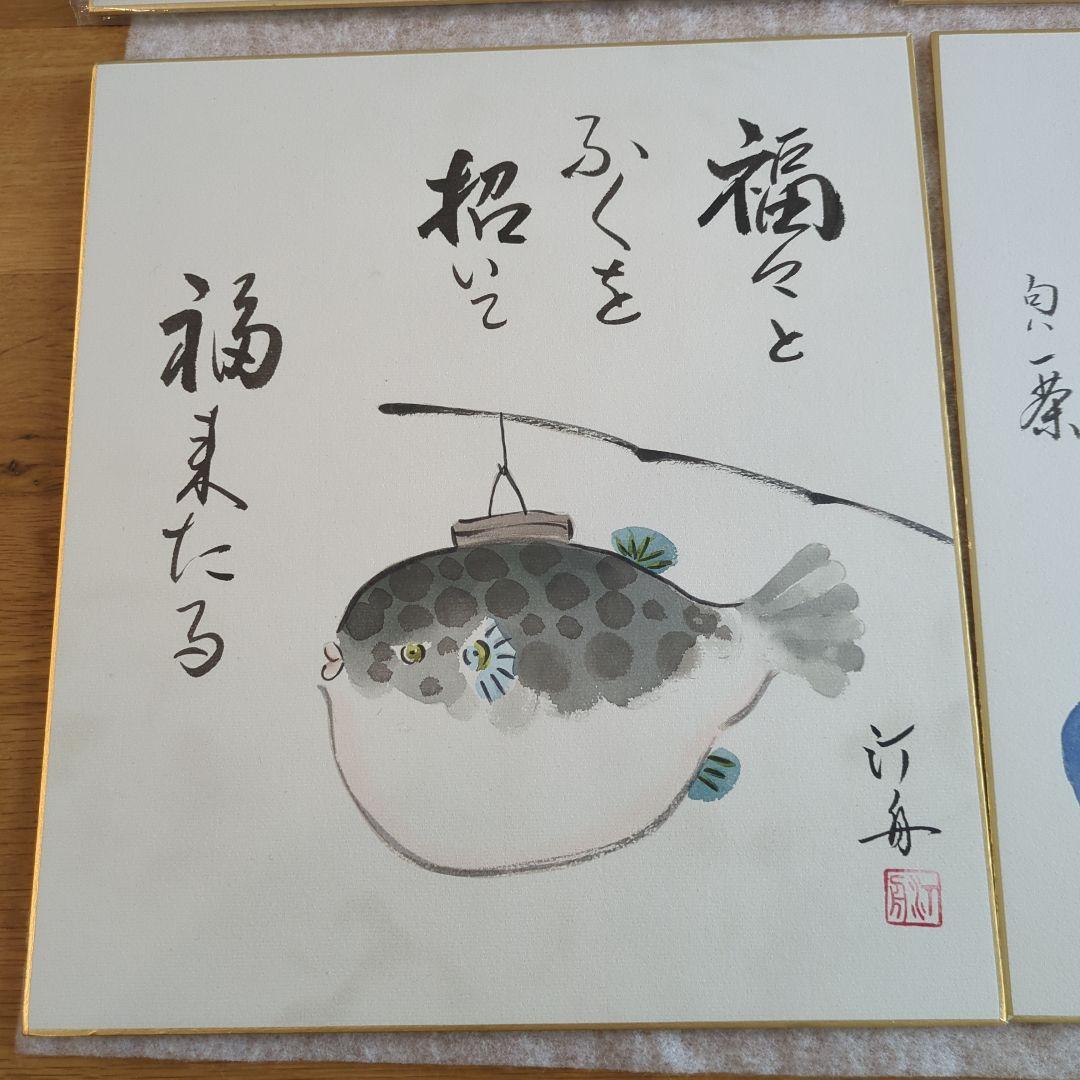 福々と
ふくを
招いて
福来たる
汀舟
汀舟
句一茶